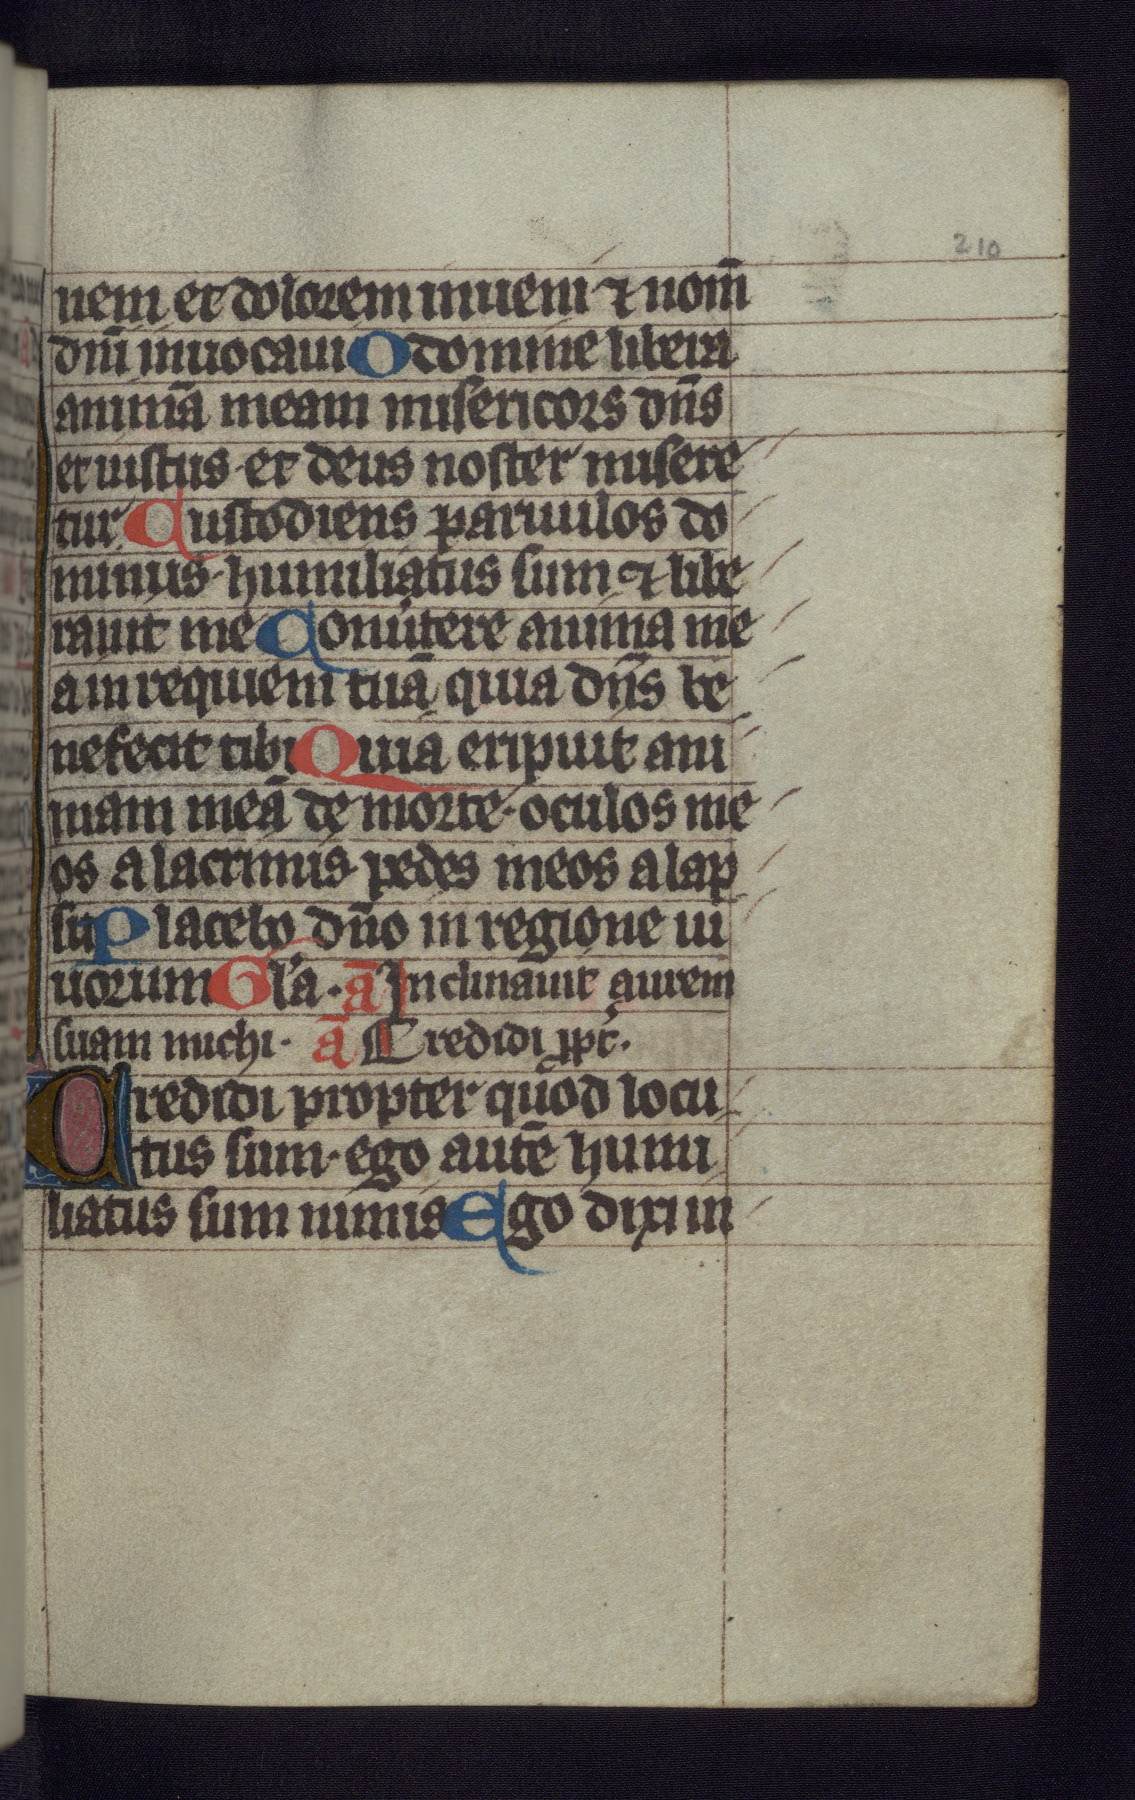 210
nem et dolorem inueni ⁊ nom̄
dn̄i inuocaui O domine libera
animā meam misericors dn̄s
et iustus· et deus noster misere
tur Custodiens paruulos do
minus· humiliatus sum ⁊ libe
rauit me Conūtere anima me
a in requiem tuā quia dn̄s be
nefecit tibi Quia eripuit ani
mam meā de morte· oculos me
os a lacrimis pedes meos a lap
su Placebo dn̄o in regione ui
uorum Gl'a· ā Inclinauit aurem
suam michi· ā Credidi ꝓpt̄·
Credidi propter quod locu
tus sum· ego autē humi
liatus sum nimis Ego dixi in